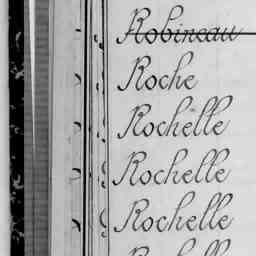 Robineau
Roche
Rochëlle
Rochelle
Rochelle